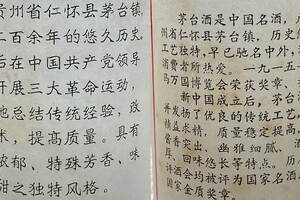 贵州省仁怀县茅台镇
二百余年的悠久历史
后在中国共产党领导
开展三大革命运动，
地总结传统经验，改
术，提高质量。具有
浓郁、特殊芳香、味
甜之独特风格。
茅台酒是中国名酒，产
州省仁怀县茅台镇，历史
工艺独特，早已驰名中外，
消费者所热爱。一九一五
马万国博览会荣获奖章、
新中国成立后，茅台
并发扬了优良的传统工艺，
精益求精，质量稳定提高
酱香突出、幽雅细腻、酒
厚、回味悠长等特点。历
评酒会均被评为国家名酒
国家金质奖章。